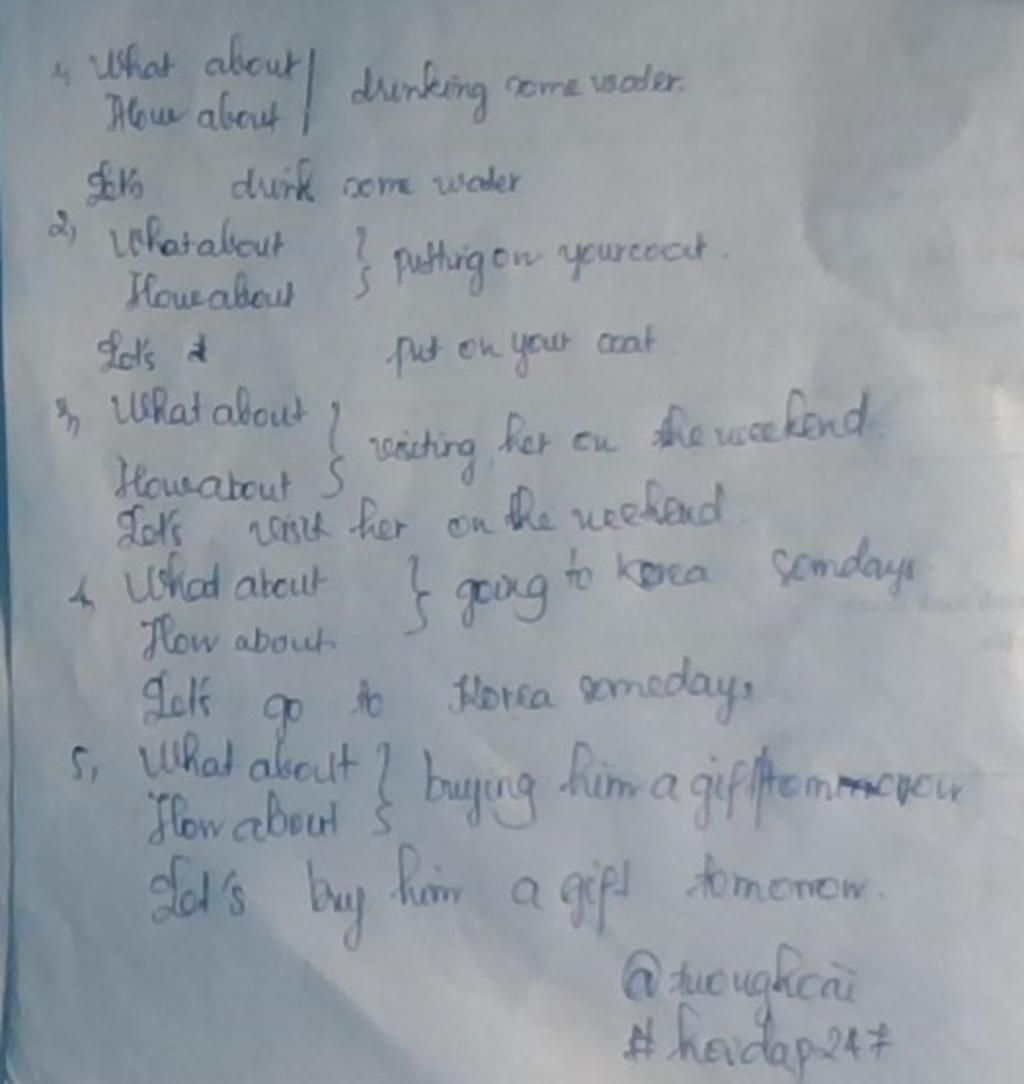 1, What about
How about } drinking some water.
Let's drink some water
2, What about
How about } putting on your coat.
Let's put on your coat
3, What about
How about } visiting her on the weekend.
Let's visit her on the weekend.
4, What about } going to korea somdays
How about
Let's go to Korea somedays
5, What about
How about } buying him a gift tommorow
Let's buy him a gift tomorrow.
@tuoughcai
# hoidap247